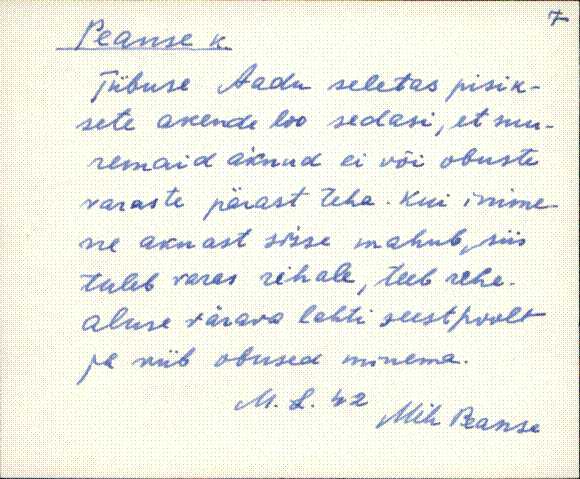 7
Peanse k.
Tiibuse Aadu seletas pisik-
sete akende loo sedasi, et suu-
remaid aknud ei või obuste
varaste pärast teha. Kui inime-
ne aknast sisse mahub, siis
tuleb varas rihale, teeb rehe-
aluse värava lahti seestpoolt
ja viib obused minema.
M. L. 42
Mih Peanse